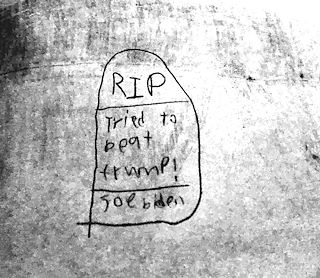 RIP
Tried to
beat
trump!
Joe biden